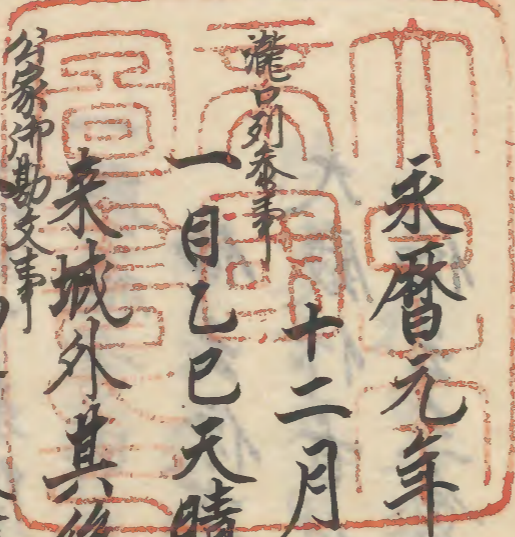 永暦元年
十二月
瀧口列参事
一日乙巳天晴
来城外其後
公家御勘文事